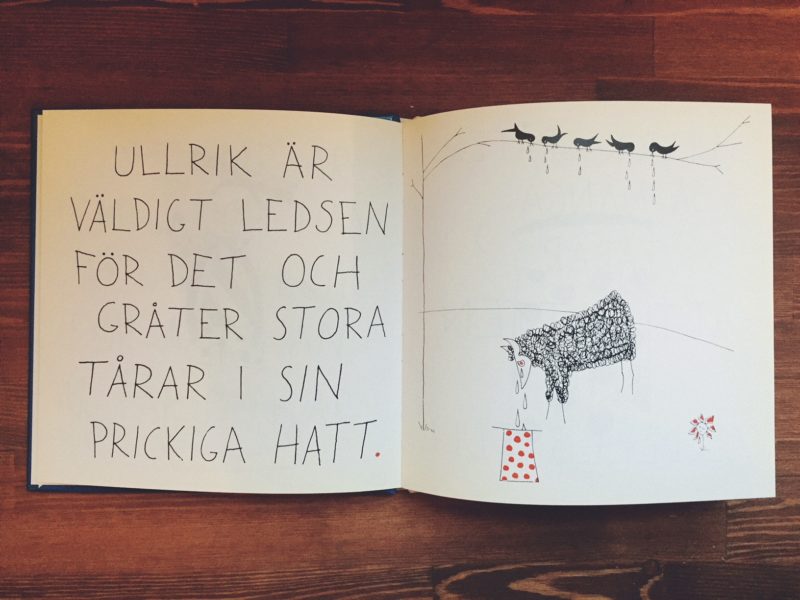 ULLRIK ÄR
VÄLDIGT LEDSEN
FÖR DET OCH
GRÅTER STORA
TÅRAR I SIN
PRICKIGA HATT.